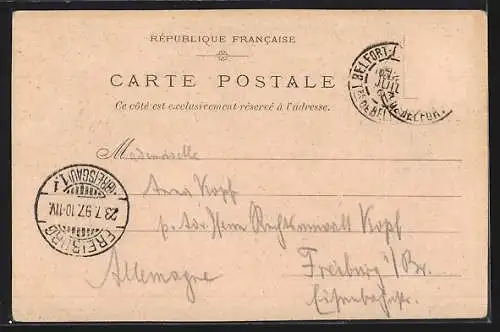 RÉPUBLIQUE FRANÇAISE
BELFORT
JUIL
CARTE POSTALE
Ce côté est exclusivement réservé à l'adresse.
Mademoiselle
Anna Kopf
p. Adr. Herrn Rechtsanwalt Kopf
Freiburg i/Br.
Eisenbahnstr.
Allemagne
FREIBURG
(BREISGAU) 1.
23.7.97.10-11V.
1